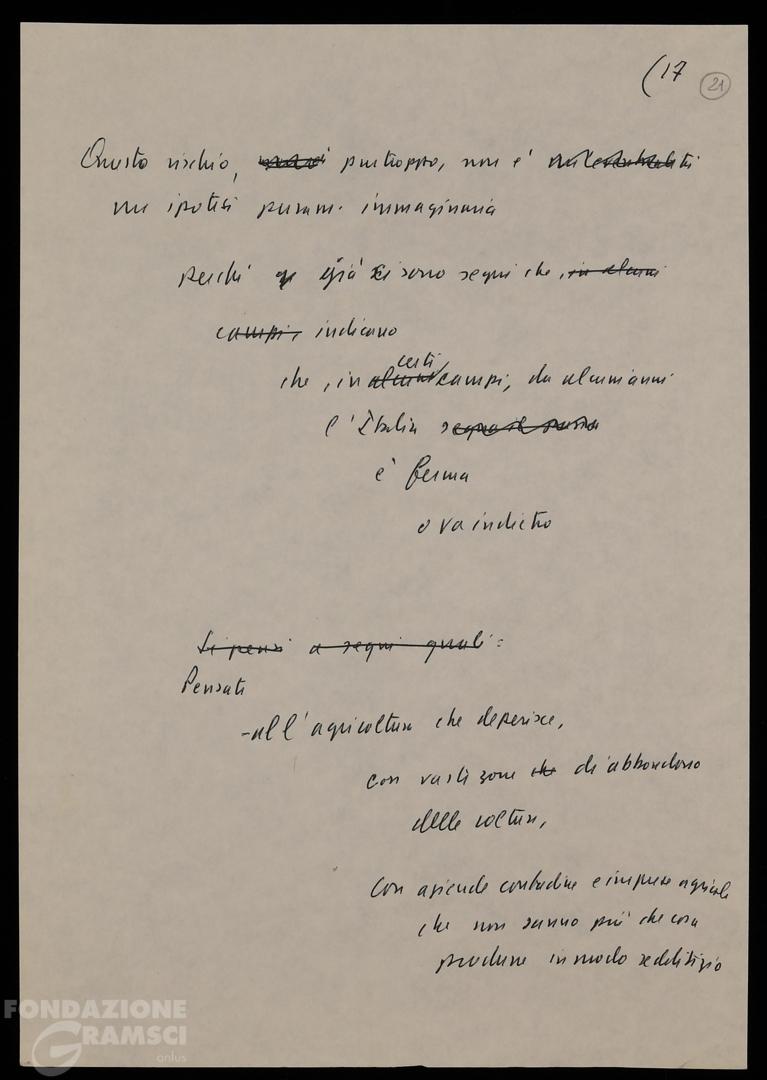 (17 21
Questo rischio, purtroppo, non è
un ipotesi puram. immaginaria
perché già ci sono segni che, in alcuni
campi, indicano
che, in alcuni certi campi, da alcuni anni
l'Italia segna il passo
è ferma
o va indietro
Si pensi a segni quali:
Pensate
- all'agricoltura che deperisce,
con vaste zone che di abbandono
delle colture,
con aziende contadine e imprese agricole
che non sanno più che cosa
produrre in modo redditizio
FONDAZIONE
GRAMSCI
onlus